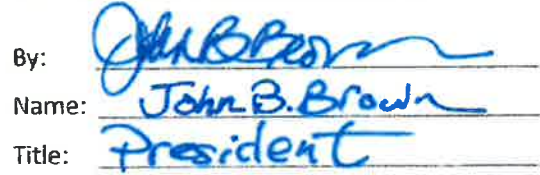 By: John B Brown
Name: John B. Brown
Title: President